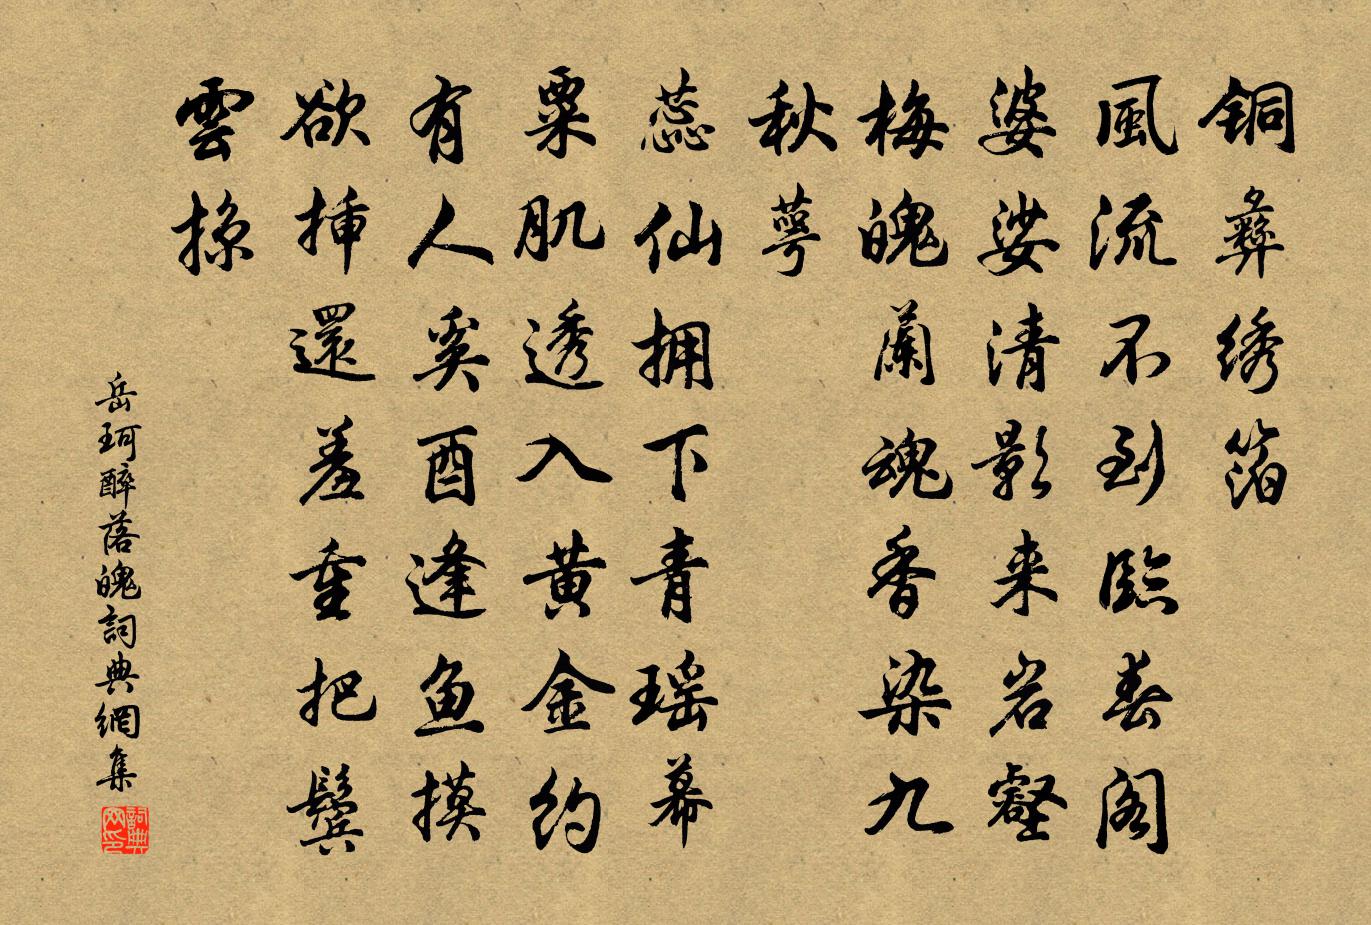 銅彝绣箔
風流不到臨春阁
婆娑清影来岩壑
梅魄蘭魂香染九
秋萼
蕊仙拥下青瑶幕
粟肌透入黄金约
有人奚酉逢鱼摸
欲挿還羞重把鬓
雲掠
岳珂醉落魄詞典網集
詞典网印